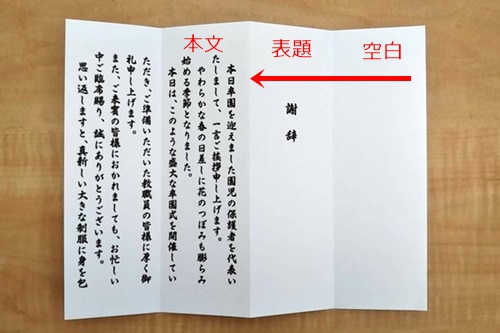 空白
表題
本文
謝辞
本日卒園を迎えました園児の保護者を代表い
たしまして、一言ご挨拶申し上げます。
やわらかな春の日差しに花のつぼみも膨らみ
始める季節となりました。
本日は、このような盛大な卒園式を開催してい
ただき、ご準備いただいた教職員の皆様に厚く御
礼申し上げます。
また、ご来賓の皆様におかれましても、お忙しい
中ご臨席賜り、誠にありがとうございます。
思い返しますと、真新しい大きな制服に身を包